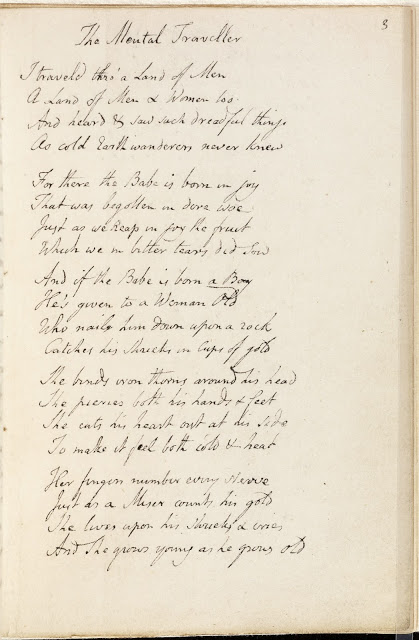 3
The Mental Traveller
I traveld thro' a Land of Men
A Land of Men & Women too
And heard & saw such dreadful things
As cold Earth wanderers never knew
For there the Babe is born in joy
That was begotten in dire woe
Just as we Reap in joy the fruit
Which we in bitter tears did Sow
And if the Babe is born a Boy
He's given to a Woman Old
Who nails him down upon a rock
Catches his Shrieks in Cups of gold
She binds iron thorns around his head
She pierces both his hands & feet
She cuts his heart out at his side
To make it feel both cold & heat
Her fingers number every Nerve
Just as a Miser counts his gold
She lives upon his shrieks & cries
And She grows young as he grows old